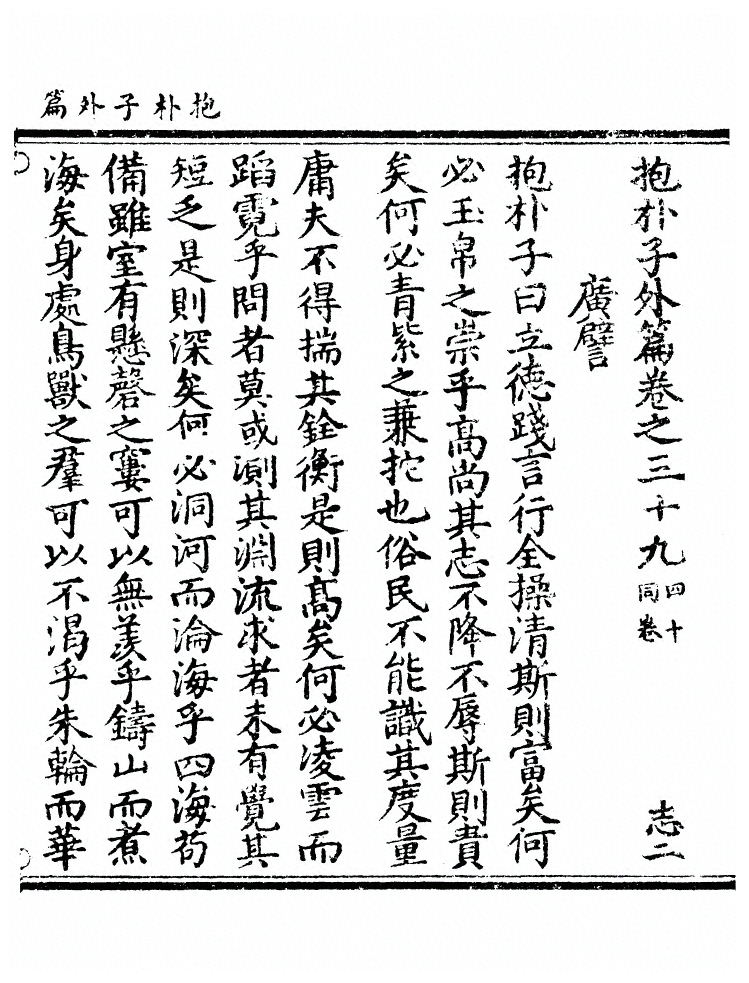 抱朴子外篇
抱朴子外篇卷之三十九 四十同卷 志二
廣譬
抱朴子曰立德踐言行全操清斯則富矣何
必玉帛之崇乎高尚其志不降不辱斯則貴
矣何必青紫之兼拕也俗民不能識其度量
庸夫不得揣其銓衡是則髙矣何必凌雲而
蹈霓乎問者莫或測其淵流求者未有覺其
短乏是則深矣何必洞河而淪海乎四海苟
備雖室有懸磬之窶可以無羨乎鑄山而煮
海矣身處鳥獸之羣可以不渴乎朱輪而華